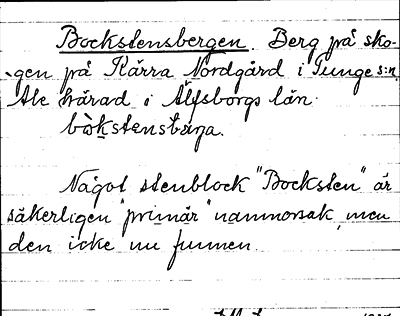 Bockstensbergen. Berg på sko-
gen på Kärra Nordgård i Tunge s:n
Ale härad i Älfsborgs län.
Något stenblock "Bocksten" är
säkerligen "primär" namnorsak, men
den icke nu funnen.